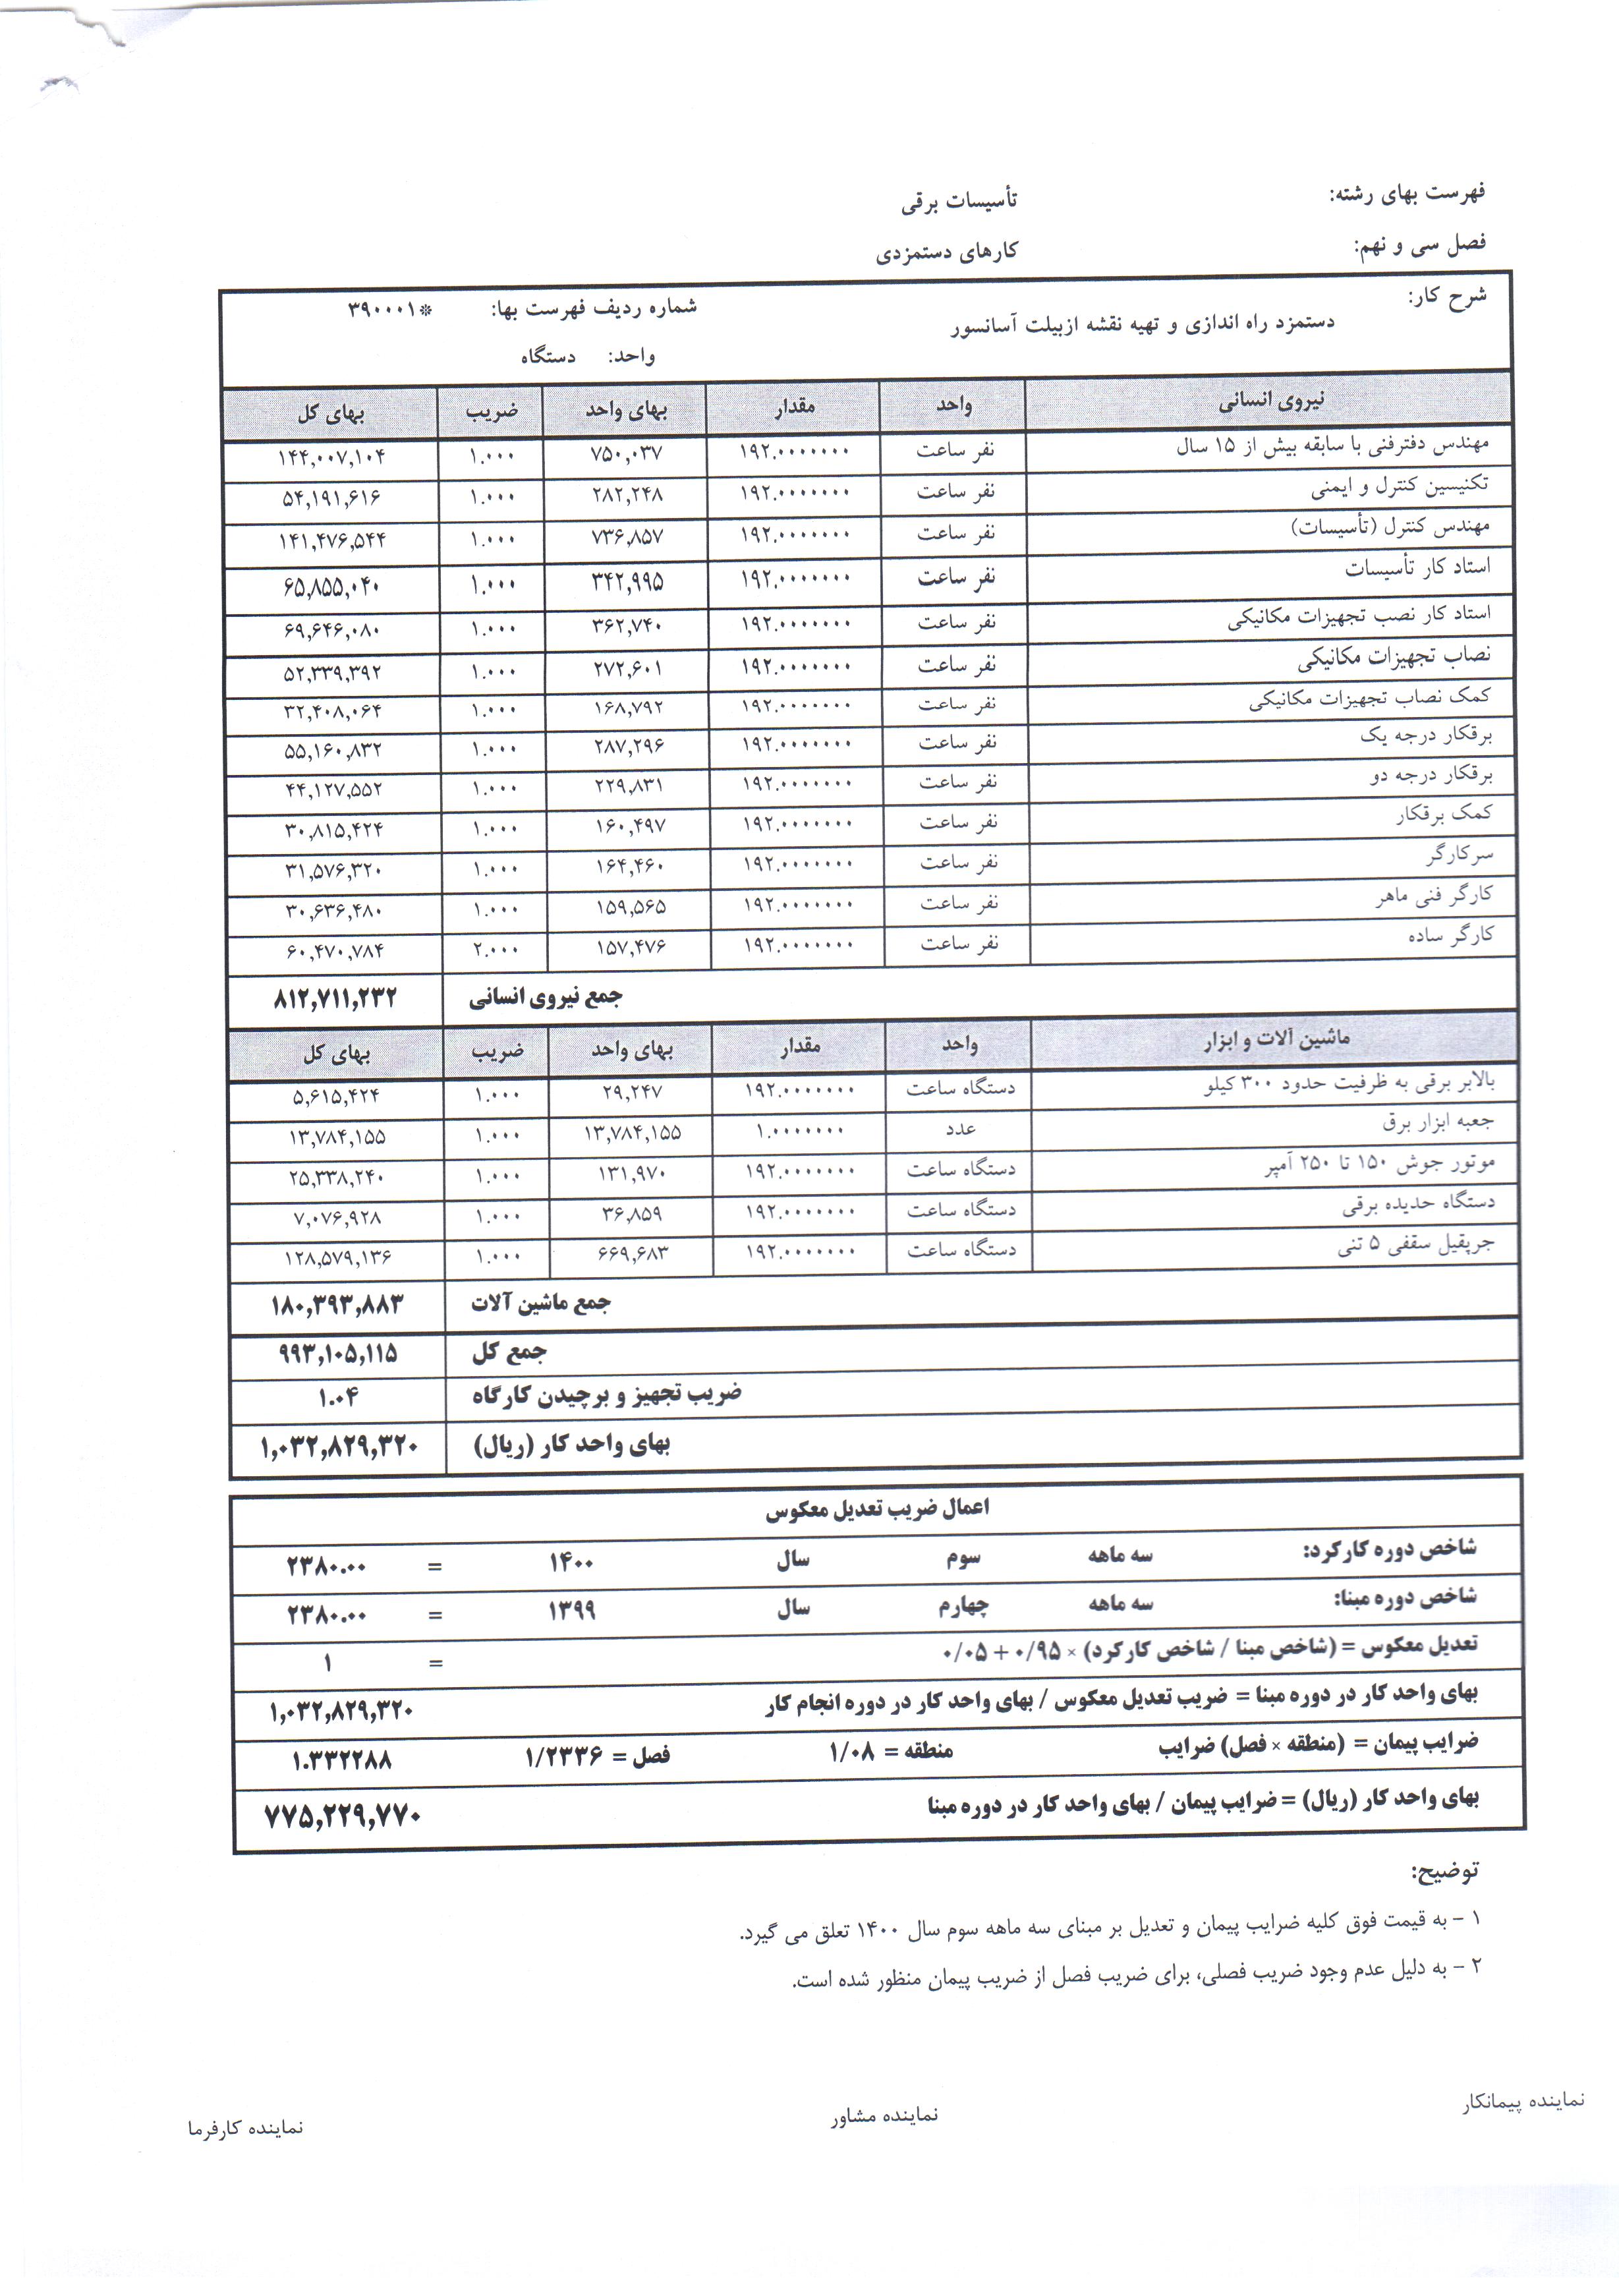 فهرست بهای رشته: تأسیسات برقی
فصل سی و نهم: کارهای دستمزدی
شرح کار: شماره ردیف فهرست بها: *۳۹۰۰۰۱
دستمزد راه اندازی و تهیه نقشه ازبیلت آسانسور
واحد: دستگاه
نیروی انسانی واحد مقدار بهای واحد ضریب بهای کل
مهندس دفترفنی با سابقه بیش از ۱۵ سال نفر ساعت ۱۹۲.۰۰۰۰۰۰۰ ۷۵۰,۰۳۷ ۱.۰۰۰ ۱۴۴,۰۰۷,۱۰۴
تکنیسین کنترل و ایمنی نفر ساعت ۱۹۲.۰۰۰۰۰۰۰ ۲۸۲,۲۴۸ ۱.۰۰۰ ۵۴,۱۹۱,۶۱۶
مهندس کنترل (تأسیسات) نفر ساعت ۱۹۲.۰۰۰۰۰۰۰ ۷۳۶,۸۵۷ ۱.۰۰۰ ۱۴۱,۴۷۶,۵۴۴
استاد کار تأسیسات نفر ساعت ۱۹۲.۰۰۰۰۰۰۰ ۳۴۲,۹۹۵ ۱.۰۰۰ ۶۵,۸۵۵,۰۴۰
استاد کار نصب تجهیزات مکانیکی نفر ساعت ۱۹۲.۰۰۰۰۰۰۰ ۳۶۲,۷۴۰ ۱.۰۰۰ ۶۹,۶۴۶,۰۸۰
نصاب تجهیزات مکانیکی نفر ساعت ۱۹۲.۰۰۰۰۰۰۰ ۲۷۲,۶۰۱ ۱.۰۰۰ ۵۲,۳۳۹,۳۹۲
کمک نصاب تجهیزات مکانیکی نفر ساعت ۱۹۲.۰۰۰۰۰۰۰ ۱۶۸,۷۹۲ ۱.۰۰۰ ۳۲,۴۰۸,۰۶۴
برقکار درجه یک نفر ساعت ۱۹۲.۰۰۰۰۰۰۰ ۲۸۷,۲۹۶ ۱.۰۰۰ ۵۵,۱۶۰,۸۳۲
برقکار درجه دو نفر ساعت ۱۹۲.۰۰۰۰۰۰۰ ۲۲۹,۸۳۱ ۱.۰۰۰ ۴۴,۱۲۷,۵۵۲
کمک برقکار نفر ساعت ۱۹۲.۰۰۰۰۰۰۰ ۱۶۰,۴۹۷ ۱.۰۰۰ ۳۰,۸۱۵,۴۲۴
سرکارگر نفر ساعت ۱۹۲.۰۰۰۰۰۰۰ ۱۶۴,۴۶۰ ۱.۰۰۰ ۳۱,۵۷۶,۳۲۰
کارگر فنی ماهر نفر ساعت ۱۹۲.۰۰۰۰۰۰۰ ۱۵۹,۵۶۵ ۱.۰۰۰ ۳۰,۶۳۶,۴۸۰
کارگر ساده نفر ساعت ۱۹۲.۰۰۰۰۰۰۰ ۱۵۷,۴۷۶ ۲.۰۰۰ ۶۰,۴۷۰,۷۸۴
جمع نیروی انسانی ۸۱۲,۷۱۱,۲۳۲
ماشین آلات و ابزار واحد مقدار بهای واحد ضریب بهای کل
بالابر برقی به ظرفیت حدود ۳۰۰ کیلو دستگاه ساعت ۱۹۲.۰۰۰۰۰۰۰ ۲۹,۲۴۷ ۱.۰۰۰ ۵,۶۱۵,۴۲۴
جعبه ابزار برق عدد ۱.۰۰۰۰۰۰۰ ۱۳,۷۸۴,۱۵۵ ۱.۰۰۰ ۱۳,۷۸۴,۱۵۵
موتور جوش ۱۵۰ تا ۲۵۰ آمپر دستگاه ساعت ۱۹۲.۰۰۰۰۰۰۰ ۱۳۱,۹۷۰ ۱.۰۰۰ ۲۵,۳۳۸,۲۴۰
دستگاه حدیده برقی دستگاه ساعت ۱۹۲.۰۰۰۰۰۰۰ ۳۶,۸۵۹ ۱.۰۰۰ ۷,۰۷۶,۹۲۸
جرپقیل سقفی ۵ تنی دستگاه ساعت ۱۹۲.۰۰۰۰۰۰۰ ۶۶۹,۶۸۳ ۱.۰۰۰ ۱۲۸,۵۷۹,۱۳۶
جمع ماشین آلات ۱۸۰,۳۹۳,۸۸۳
جمع کل ۹۹۳,۱۰۵,۱۱۵
ضریب تجهیز و برچیدن کارگاه ۱.۰۴
بهای واحد کار (ریال) ۱,۰۳۲,۸۲۹,۳۲۰
اعمال ضریب تعدیل معکوس
شاخص دوره کارکرد: سه ماهه سوم سال ۱۴۰۰ = ۲۳۸۰.۰۰
شاخص دوره مبنا: سه ماهه چهارم سال ۱۳۹۹ = ۲۳۸۰.۰۰
تعدیل معکوس = (شاخص مبنا / شاخص کارکرد) × ۰/۹۵ + ۰/۰۵ = ۱
بهای واحد کار در دوره مبنا = ضریب تعدیل معکوس / بهای واحد کار در دوره انجام کار ۱,۰۳۲,۸۲۹,۳۲۰
ضرایب پیمان = (منطقه × فصل) ضرایب منطقه = ۱/۰۸ فصل = ۱/۲۳۳۶ ۱.۳۳۲۲۸۸
بهای واحد کار (ریال) = ضرایب پیمان / بهای واحد کار در دوره مبنا ۷۷۵,۲۲۹,۷۷۰
توضیح:
۱ – به قیمت فوق کلیه ضرایب پیمان و تعدیل بر مبنای سه ماهه سوم سال ۱۴۰۰ تعلق می گیرد.
۲ – به دلیل عدم وجود ضریب فصلی، برای ضریب فصل از ضریب پیمان منظور شده است.
نماینده پیمانکار نماینده مشاور نماینده کارفرما